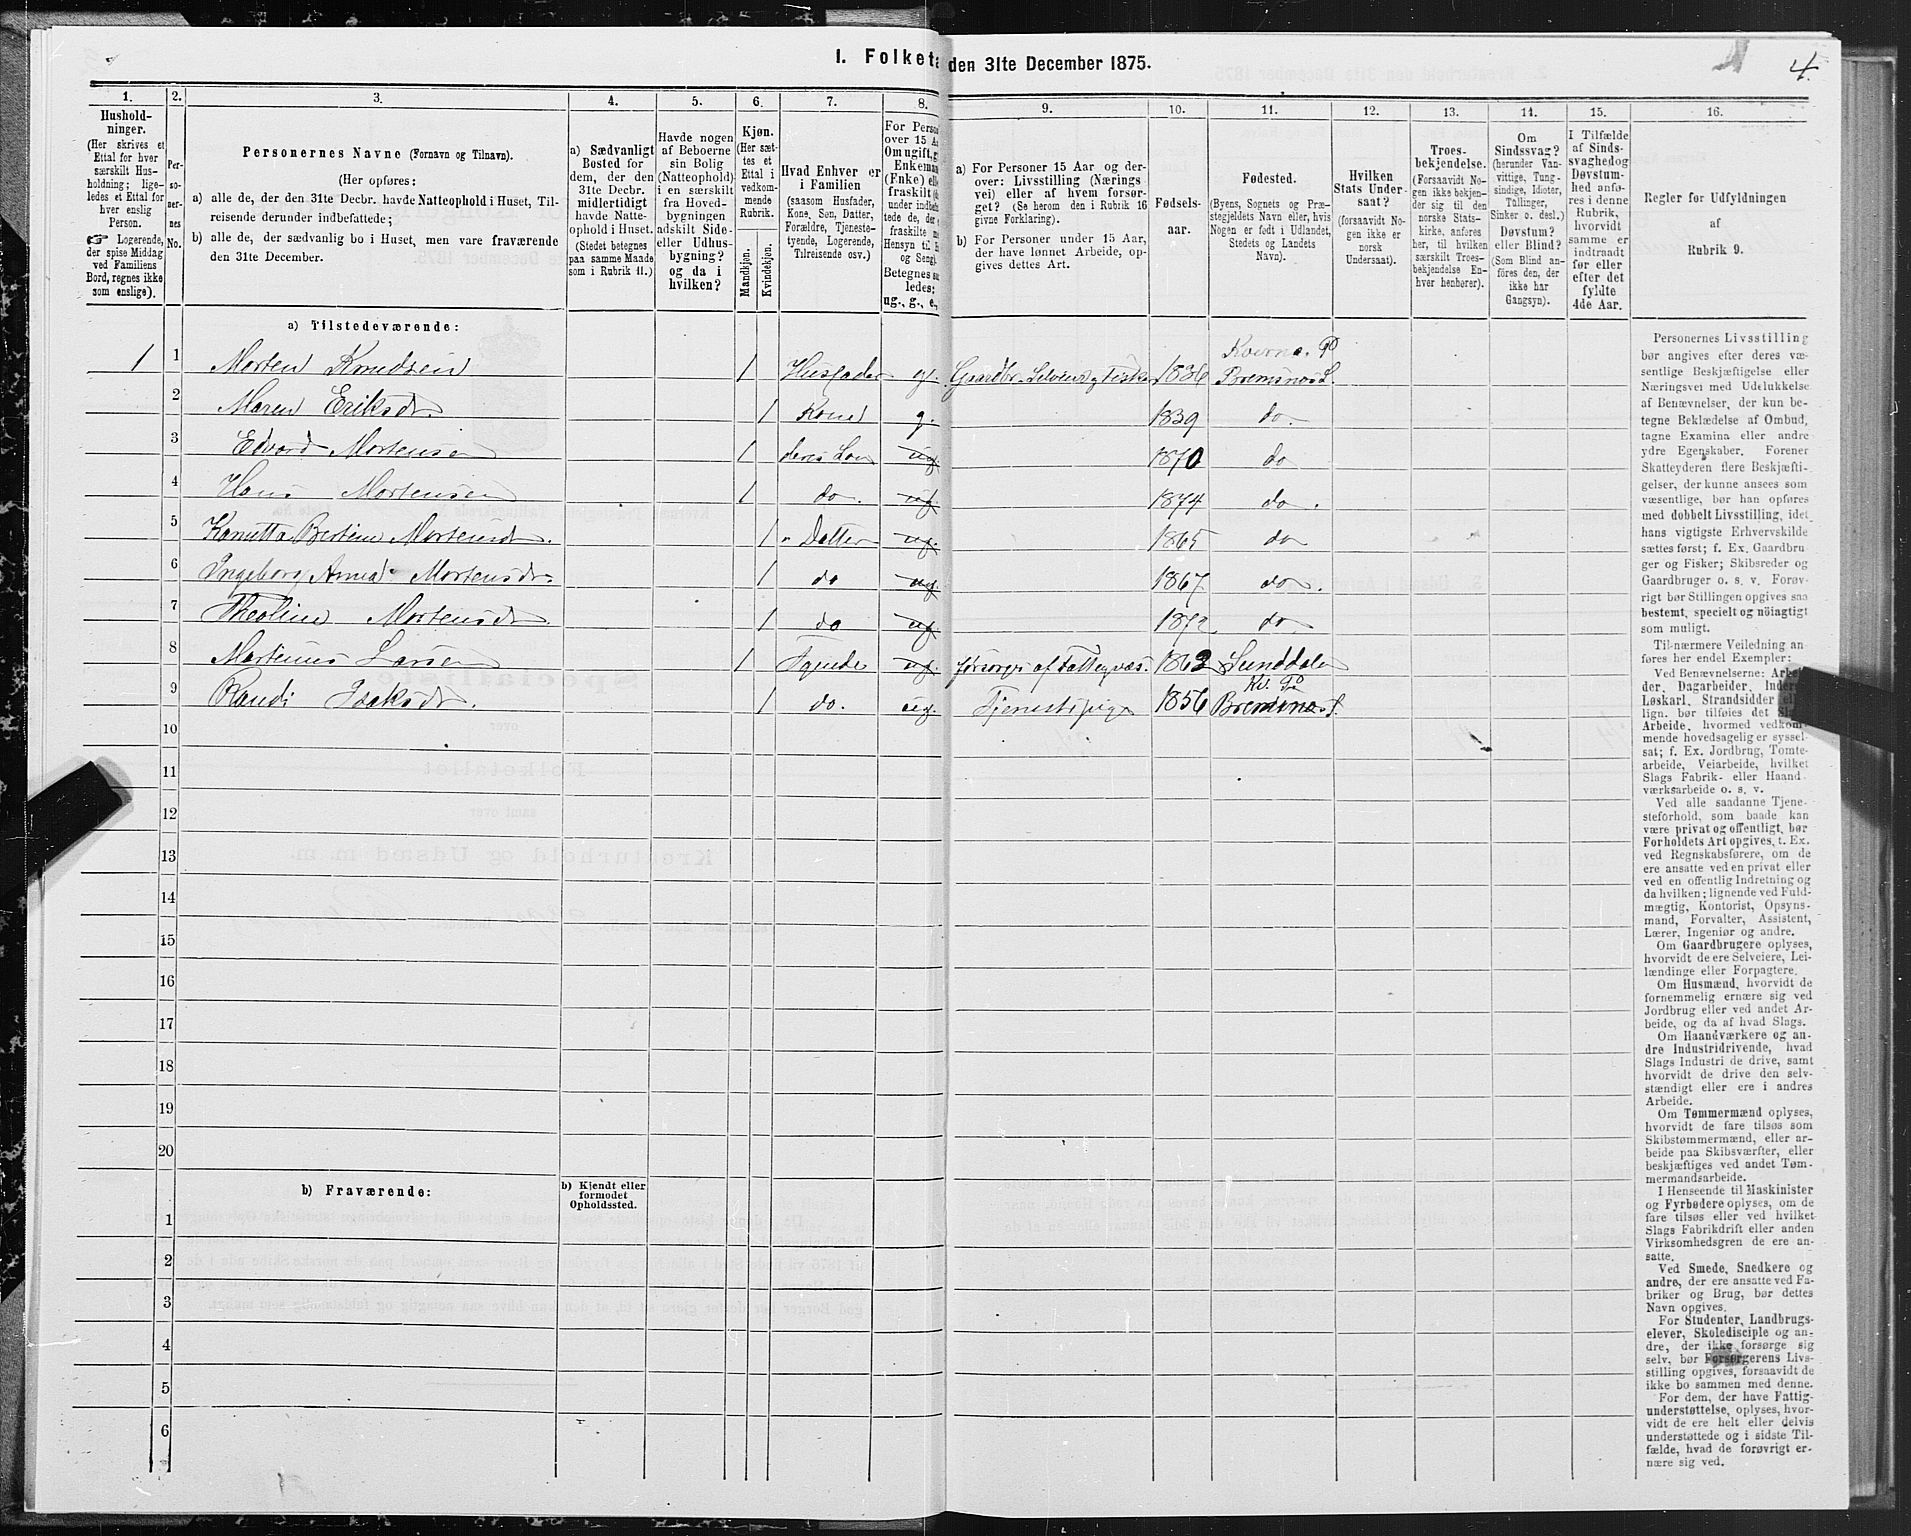 1. Folketa den 31te December 1875.
4.
1. 2. 3. 4. 5. 6. 7. 8. 9. 10. 11. 12. 13. 14. 15. 16.
Hushold-
ninger.
(Her skrives et
Ettal for hver
særskilt Hus-
holdning; lige-
ledes et Ettal for
hver enslig
Person.
☞ Logerende,
der spise Middag
ved Familiens
Bord, regnes ikke
som enslige).
Per-
so-
ner-
nes
No.
Personernes Navne (Fornavn og Tilnavn).
(Her opføres:
a) alle de, der den 31te Decbr. havde Natteophold i Huset, Til-
reisende derunder indbefattede;
b) alle de, der sædvanlig bo i Huset, men vare fraværende
den 31te December.
a) Sædvanligt
Bosted for
dem, der den
31te Decbr.
midlertidigt
havde Natte-
ophold i Huset.
(Stedet betegnes
paa samme Maade
som i Rubrik 11.)
Havde nogen
af Beboerne
sin Bolig
(Natteophold)
i en særskilt
fra Hoved-
bygningen
adskilt Side-
eller Udhus-
bygning?
og da i
hvilken?
Kjøn.
(Her sæt-
tes et
Ettal i
vedkom-
mende
Rubrik.
Mandkjøn.
Kvindekjøn.
Hvad Enhver er
i Familien
(saasom Husfader,
Kone, Søn, Datter,
Forældre, Tjeneste-
tyende, Logerende,
Tilreisende osv.)
For Perso
over 15 A
Om ugift, g
Enkeman
(Fnke) ell
fraskilt
under indbe
tede de, der
fraskilte
Hensyn til
og Seng).
Betegnes s
ledes:
ug., g., e.,
a) For Personer 15 Aar og der-
over: Livsstilling (Nærings
vei) eller af hvem forsør-
get? (Se herom den i Rubrik 16
givne Forklaring).
b) For Personer under 15 Aar,
der have lønnet Arbeide, op-
gives dettes Art.
Fødsels-
aar.
Fødested.
(Byens, Sognets og Præ-
stegjeldets Navn eller, hvis
Nogen er født i Udlandet,
Stedets og Landets
Navn).
Hvilken
Stats Under-
saat?
(forsaavidt No-
gen ikke er
norsk
Undersaat).
Troes-
bekjendelse.
(Forsaavidt No-
gen ikke bekjen-
der sig til den
norske Stats-
kirke, anføres
her, til hvilken
særskilt Troes-
bekjendelse En-
hver henhører).
Om
Sindssvag?
(herunder Van-
vittige, Tung-
sindige, Idioter,
Tullinger,
Sinker o. desl.)
Døvstum?
eller Blind?
(Som Blind an-
føres den, der
ikke har
Gangsyn).
I Tilfælde
af Sinds-
svaghed og
Døvstum-
hed anfø-
res i denne
Rubrik,
hvorvidt
samme er
indtraadt
før eller
efter det
fyldte
4de Aar.
Regler for Udfyldningen
af
Rubrik 9.
a) Tilstedeværende:
Kværnæs Pd
1 1 Morten Knudsen 1 Husfader g. Gaardbr. Selveier og Fisker 1836 Bremsnæs S.
2 Maren Eriksdr. 1 Kone g. 1839 do.
3 Edvard Mortensen 1 deres Søn ug 1870 do
4 Hans Mortensen 1 do. ug. 1874 do.
5 Kanutta Bertine Mortensdr. 1 " Datter ug. 1865 do
6 Ingeborg Anna Mortensdr. 1 do ug. 1867. do.
7 Theoline Mortensdr. 1 do ug. 1872. do.
8 Martinus Larsen 1 Tyende ug. forsørges af Fattigvæs. 1862 Sunddalen
Kv. Pd
9 Randi Isaksdr. 1 do. ug. Tjenestepige 1856 Bremsnæs S.
10
11
12
13
14
15
16
17
18
19
20
b) Fraværende:
b) Kjendt eller
formodet
Opholdssted.
1
2
3
4
5
6
Personernes Livsstilling
bør angives efter deres væ-
sentlige Beskjæftigelse eller
Næringsvei med Udelukkelse
af Benævnelser, der kun be-
tegne Beklædelse af Ombud,
tagne Examina eller andre
ydre Egenskaber. Forener
Skatteyderen flere Beskjæfti-
gelser, der kunne ansees som
væsentlige, bør han opføres
med dobbelt Livsstilling, idet
hans vigtigste Erhvervskilde
sættes først; f. Ex. Gaardbru-
ger og Fisker; Skibsreder og
Gaardbruger o. s. v. Forøv-
rigt bør Stillingen opgives saa
bestemt, specielt og nöiagtigt
som muligt.
Til nærmere Veiledning an
føres her endel Exempler:
Ved Benævnelserne: Arbei-
der, Dagarbeider, Inderst,
Løskarl, Strandsidder el.
lign. bør tilføies det Slags
Arbeide, hvormed vedkom-
mende hovedsagelig er syssel-
sat; f. Ex. Jordbrug, Tomte-
arbeide, Veiarbeide, hvilket
Slags Fabrik- eller Haand
værksarbeide o. s. v.
Ved alle saadanne Tjene-
steforhold, som baade kan
være privat og offentligt, bør
Forholdets Art opgives, t. Ex.
ved Regnskabsførere, om de
ere ansatte ved en privat eller
ved en offentlig Indretning og
da hvilken; lignende ved Fuld-
mægtig, Kontorist, Opsyns-
mand, Forvalter, Assistent,
Lærer, Ingeniør og andre.
Om Gaardbrugere oplyses,
hvorvidt de ere Selveiere, Lei-
lændinge eller Forpagtere.
Om Husmænd, hvorvidt de
fornemmelig ernære sig ved
Jordbrug eller ved andet Ar-
beide, og da af hvad Slags.
Om Haandværkere og an-
dre Industridrivende, hvad
Slags Industri de drive, samt
hvorvidt de drive den selv-
stændigt eller ere i andres
Arbeide.
Om Tømmermænd oplyses,
hvorvidt de fare tilsøs som
Skibstømmermænd, eller ar-
beide paa Skibsværfter, eller
beskjæftiges ved andet Tøm-
mermandsarbeide.
I Henseende til Maskinister
og Fyrbødere oplyses, om de
fare tilsøs eller ved hvilket
Slags Fabrikdrift eller anden
Virksomhedsgren de ere an-
satte.
Ved Smede, Snedkere og
andre, der ere ansatte ved Fa-
briker og Brug, bør dettes
Navn opgives.
For Studenter, Landbrugs-
elever, Skoledisciple og an-
dre, der ikke forsørge sig
selv, bør Forsørgerens Livs-
stilling opgives, forsaavidt de
ikke bo sammen med denne.
For dem, der have Fattig-
understøttelse, oplyses, hvor-
vidt de ere helt eller delvis
understøttede og i sidste Til-
fælde, hvad de forøvrigt er-
nære sig ved.